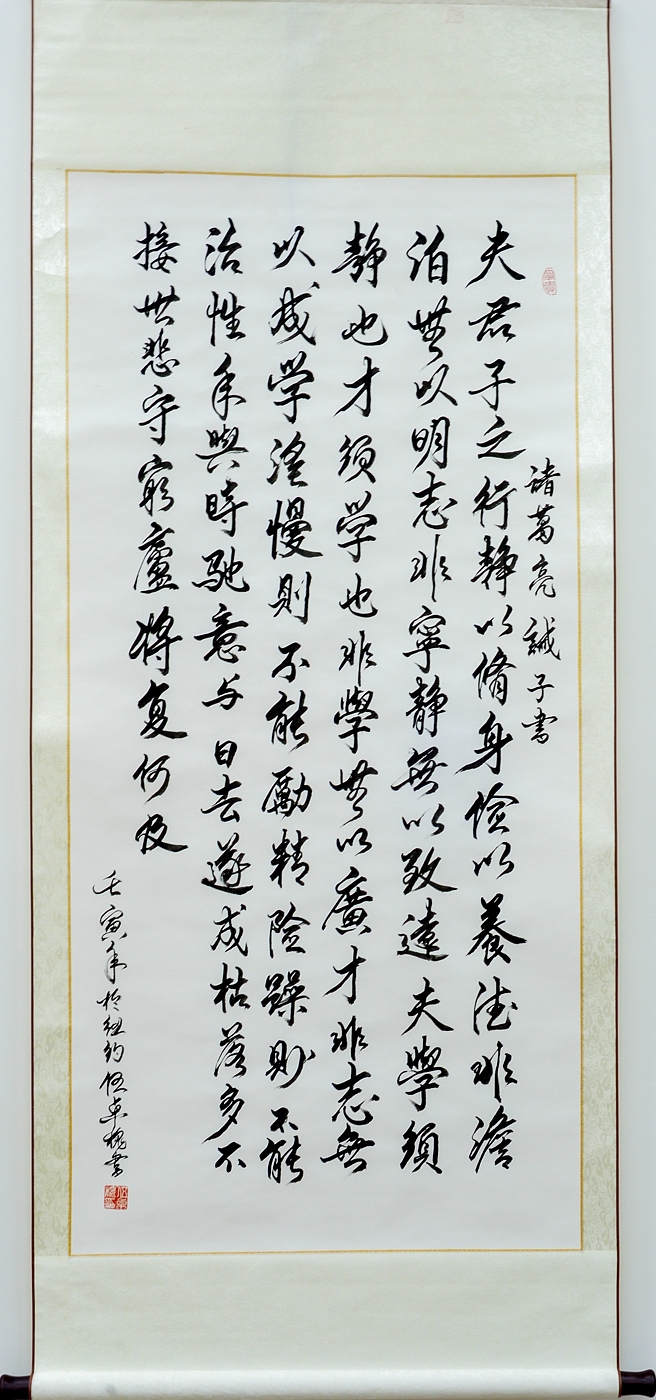 諸葛亮誡子書
夫君子之行静以脩身俭以養德非澹
泊無以明志非寧静無以致遠夫學須
静也才須学也非學無以廣才非志無
以成学淫慢則不能勵精险躁則不能
治性年與時馳意与日去遂成枯落多不
接世悲守窮廬将复何及
壬寅年於紐約伍卓槐書